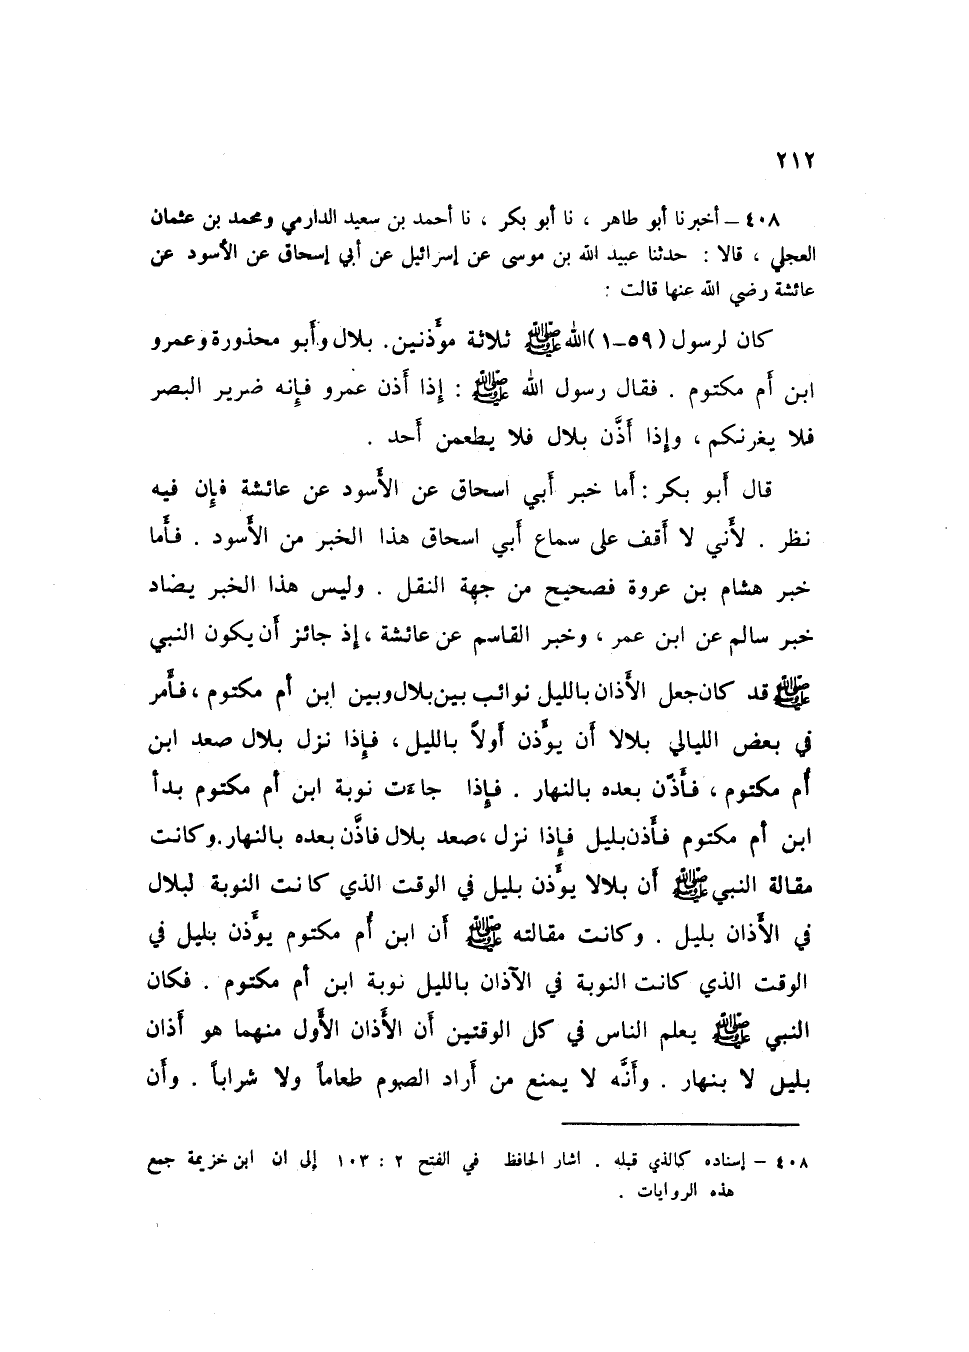 ٢١٢
٤٠٨ – أخبرنا أبو طاهر ، نا أبو بكر ، نا أحمد بن سعيد الدارمي ومحمد بن عثمان
العجلي ، قالا : حدثنا عبيد الله بن موسى عن إسرائيل عن أبي إسحاق عن الأسود عن
عائشة رضي الله عنها قالت :
كان لرسول (٥٩–١) الله ﷺ ثلاثة مؤَذنين. بلال وأَبو محذورة وعمرو
ابن أَم مكتوم . فقال رسول الله ﷺ : إِذا أَذن عمرو فإِنه ضرير البصر
فلا يغرنكم ، وإِذا أَذَّن بلال فلا يطعمن أَحد .
قال أَبو بكر : أَما خبر أَبي اسحاق عن الأَسود عن عائشة فإِن فيه
نظر . لأَني لا أَقف على سماع أَبي اسحاق هذا الخبر من الأَسود . فأَما
خبر هشام بن عروة فصحيح من جهة النقل . وليس هذا الخبر يضاد
خبر سالم عن ابن عمر ، وخبر القاسم عن عائشة ، إِذ جائز أَن يكون النبي
ﷺ قد كان جعل الأَذان بالليل نوائب بين بلال وبين ابن أَم مكتوم ، فأَمر
في بعض الليالي بلالا أَن يؤَذن أَولاً بالليل ، فإِذا نزل بلال صعد ابن
أُم مكتوم ، فأَذّن بعده بالنهار . فإِذا جاءت نوبة ابن أَم مكتوم بدأَ
ابن أَم مكتوم فأَذن بليل فإِذا نزل ، صعد بلال فاذَّن بعده بالنهار. وكانت
مقالة النبي ﷺ أَن بلالا يؤَذن بليل في الوقت الذي كانت النوبة لبلال
في الأَذان بليل . وكانت مقالته ﷺ أَن ابن أُم مكتوم يؤَذن بليل في
الوقت الذي كانت النوبة في الآذان بالليل نوبة ابن أَم مكتوم . فكان
النبي ﷺ يعلم الناس في كل الوقتين أَن الأَذان الأَول منهما هو أَذان
بليل لا بنهار . وأَنَّه لا يمنع من أَراد الصوم طعاماً ولا شراباً . وأَن
٤٠٨ – إسناده كالذي قبله . اشار الحافظ في الفتح ٢ : ١٠٣ إلى ان ابن خزيمة جمع
هذه الروايات .